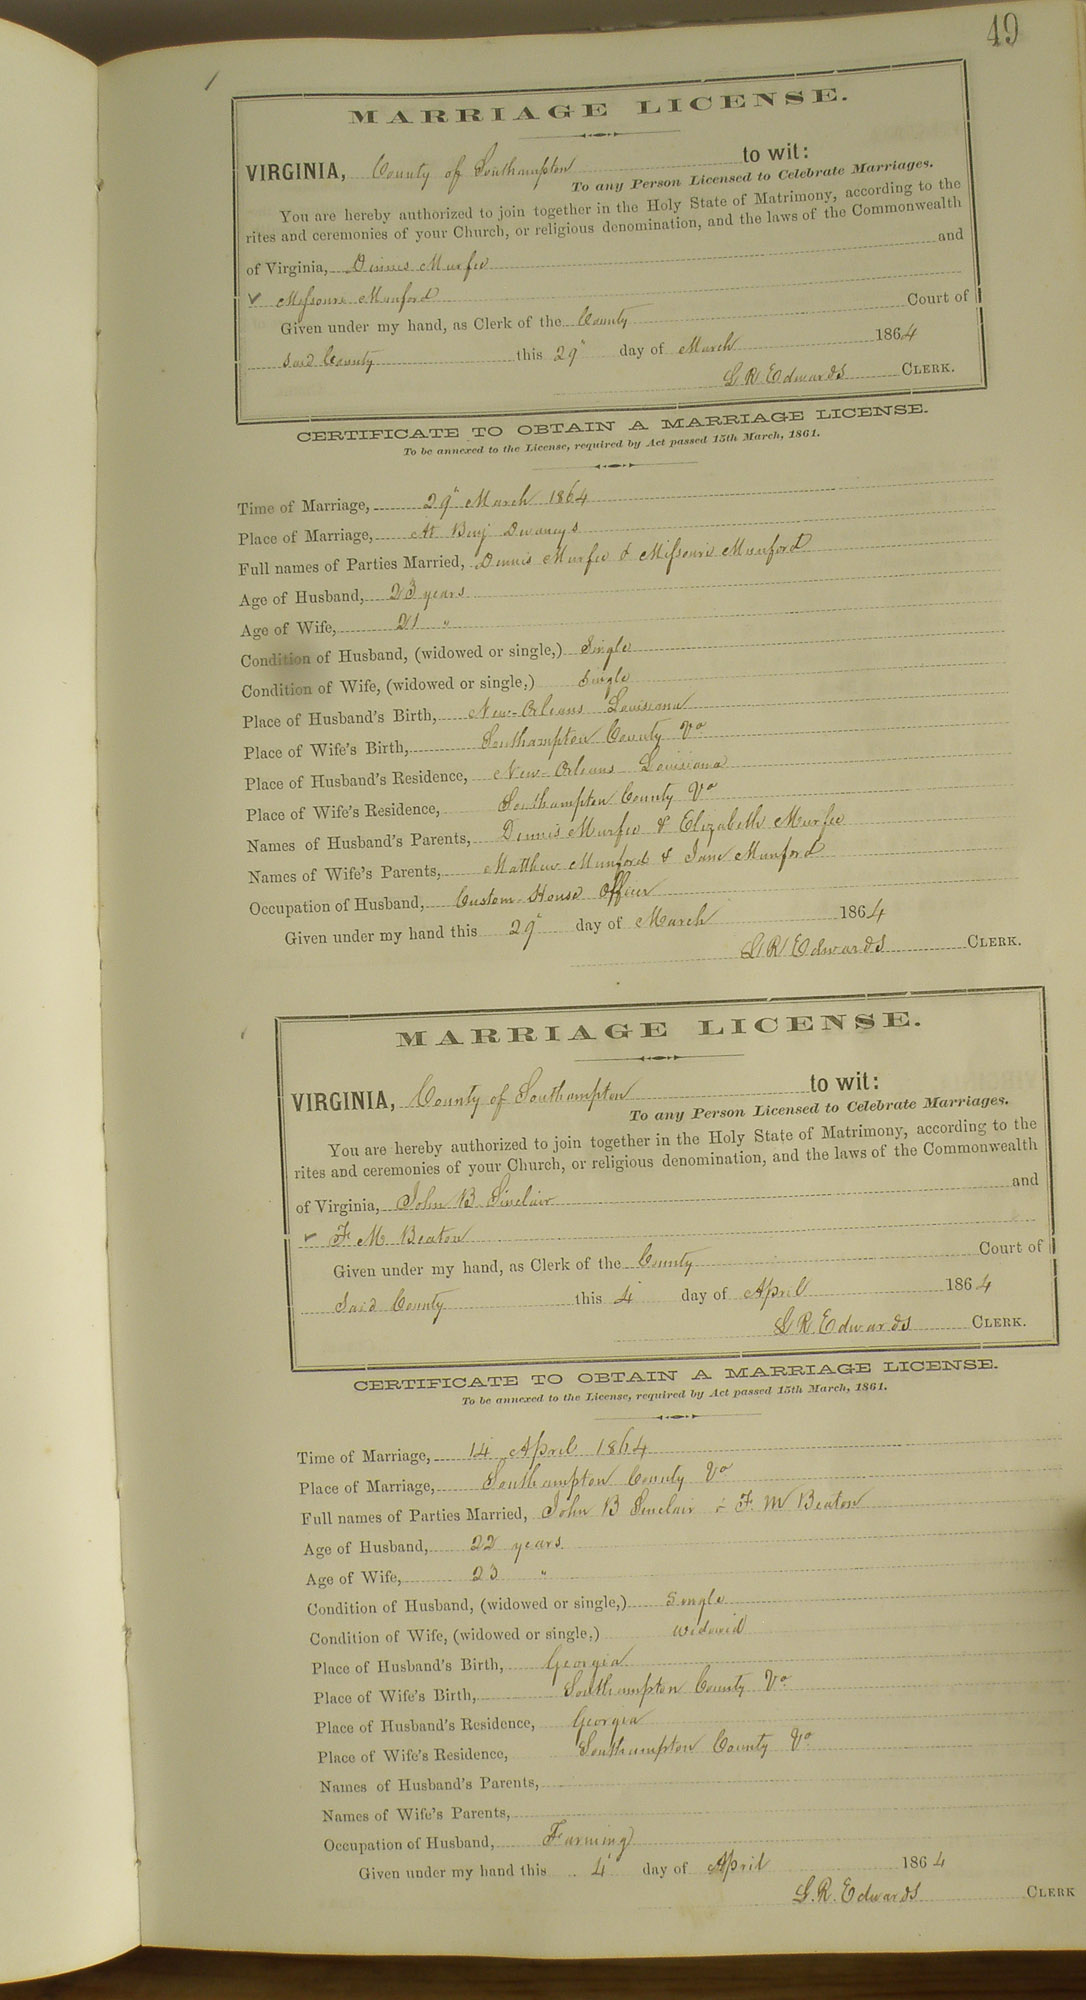 49
MARRIAGE LICENSE.
VIRGINIA, County of Southampton to wit:
To any Person Licensed to Celebrate Marriages.
You are hereby authorized to join together in the Holy State of Matrimony, according to the
rites and ceremonies of your Church, or religious denomination, and the laws of the Commonwealth
of Virginia, Dennis Murfee and
✓ Missouri Munford
Given under my hand, as Clerk of the County Court of
said County this 29" day of March 1864
L R Edwards CLERK.
CERTIFICATE TO OBTAIN A MARRIAGE LICENSE.
To be annexed to the License, required by Act passed 15th March, 1861.
Time of Marriage, 29" March 1864
Place of Marriage, At Benj Devaneys
Full names of Parties Married, Dennis Murfee & Missouri Munford
Age of Husband, 23 years
Age of Wife, 21 "
Condition of Husband, (widowed or single,) Single
Condition of Wife, (widowed or single,) Single
Place of Husband's Birth, New-Orleans Louisiana
Place of Wife's Birth, Southampton County Va
Place of Husband's Residence, New-Orleans Louisiana
Place of Wife's Residence, Southampton County Va
Names of Husband's Parents, Dennis Murfee & Elizabeth Murfee
Names of Wife's Parents, Matthew Munford & Jane Munford
Occupation of Husband, Custom-House Officer
Given under my hand this 29" day of March 1864
L R Edwards CLERK.
MARRIAGE LICENSE.
VIRGINIA, County of Southampton to wit:
To any Person Licensed to Celebrate Marriages.
You are hereby authorized to join together in the Holy State of Matrimony, according to the
rites and ceremonies of your Church, or religious denomination, and the laws of the Commonwealth
of Virginia, John B. Sinclair and
✓ F. M. Beaton
Given under my hand, as Clerk of the County Court of
said County this 4" day of April 1864
L. R. Edwards CLERK.
CERTIFICATE TO OBTAIN A MARRIAGE LICENSE.
To be annexed to the License, required by Act passed 15th March, 1861.
Time of Marriage, 14 April 1864
Place of Marriage, Southampton County Va
Full names of Parties Married, John B Sinclair & F. M Beaton
Age of Husband, 22 years
Age of Wife, 23 "
Condition of Husband, (widowed or single,) Single
Condition of Wife, (widowed or single,) Widowed
Place of Husband's Birth, Georgia
Place of Wife's Birth, Southampton County Va
Place of Husband's Residence, Georgia
Place of Wife's Residence, Southampton County Va
Names of Husband's Parents,
Names of Wife's Parents,
Occupation of Husband, Farming
Given under my hand this 4" day of April 1864
L. R. Edwards CLERK